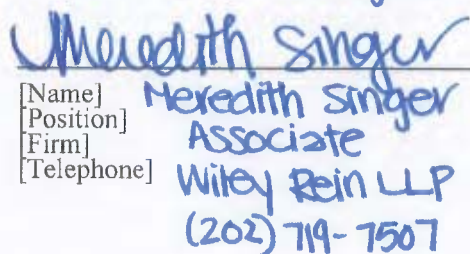 Meredith Singer
[Name] Meredith Singer
[Position] Associate
[Firm] Wiley Rein LLP
[Telephone] (202) 719-7507